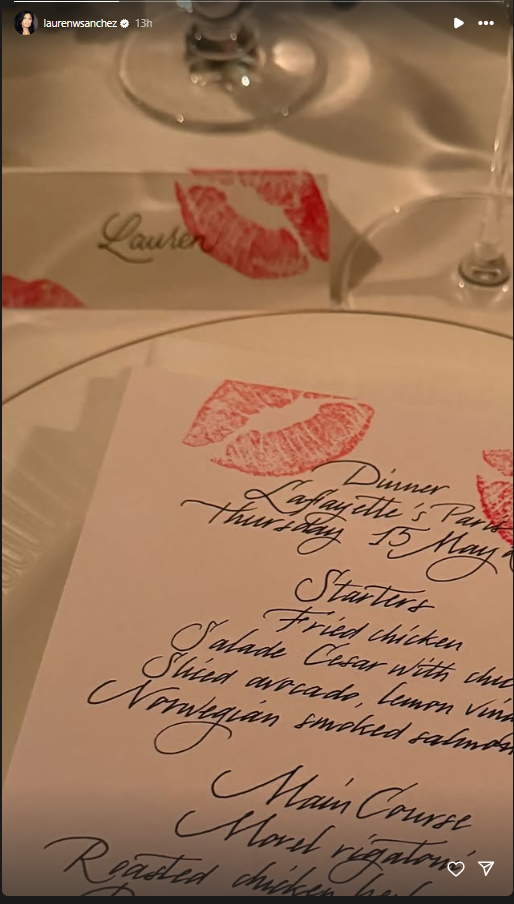 laurenwsanchez 13h
Lauren
Dinner
Lafayette's Paris
Thursday 15 May
Starters
Fried chicken
Salade Cesar with
Sliced avocado, lemon
Norwegian smoked salmon
Main Course
Morel rigatoni
Roasted chicken